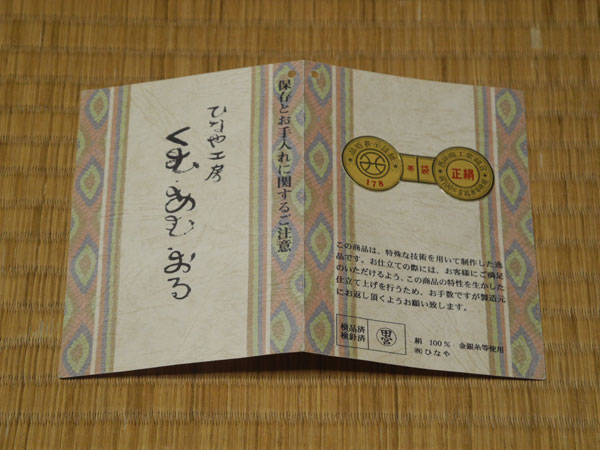 ひなや工房
くむ・あむ・おる
保存とお手入れに関するご注意
178
帯 袋
正絹
この商品は、特殊な技術を用いて制作した逸
品です。お仕立ての際には、お客様にご満足
のいただけるよう、この商品の特性を生かした
仕立て上げを行うため、お手数ですが製造元
にお返し頂くようお願い致します。
検品済
検針済
絹 100% 金銀糸等使用
㈱ひなや